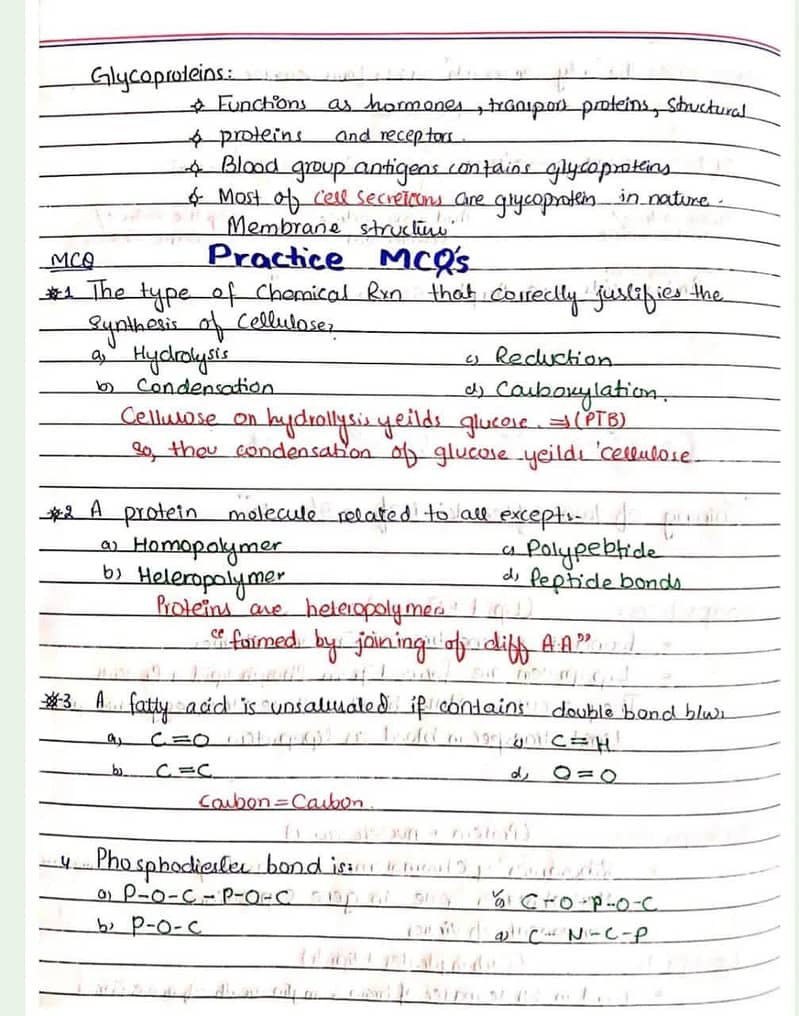 Glycoproteins:
Functions as hormones, transport proteins, structural
proteins and receptors.
Blood group antigens contains glycoproteins
Most of cell secretions are glycoprotein in nature.
Membrane structure
MCQ Practice MCQ's
#1 The type of Chemical Rxn that correctly justifies the
synthesis of cellulose?
a) Hydrolysis c) Reduction
b) Condensation d) Carboxylation.
Cellulose on hydrollysis yeilds glucose. ⇒ (PTB)
So, thev condensation of glucose yeilds cellulose
#2 A protein molecule related to all except:-
a) Homopolymer c) Polypeptide
b) Heteropolymer d) Peptide bonds
Proteins are heteropolymer
"formed by joining of diff A.A"
#3 A fatty acid is unsaturated if contains double bond b/w:
a) C=O C=H
b) C=C d) O=O
Carbon=Carbon.
4 Phosphodiester bond is:
a) P-O-C-P-O-C C-O-P-O-C
b) P-O-C C-N-C-P